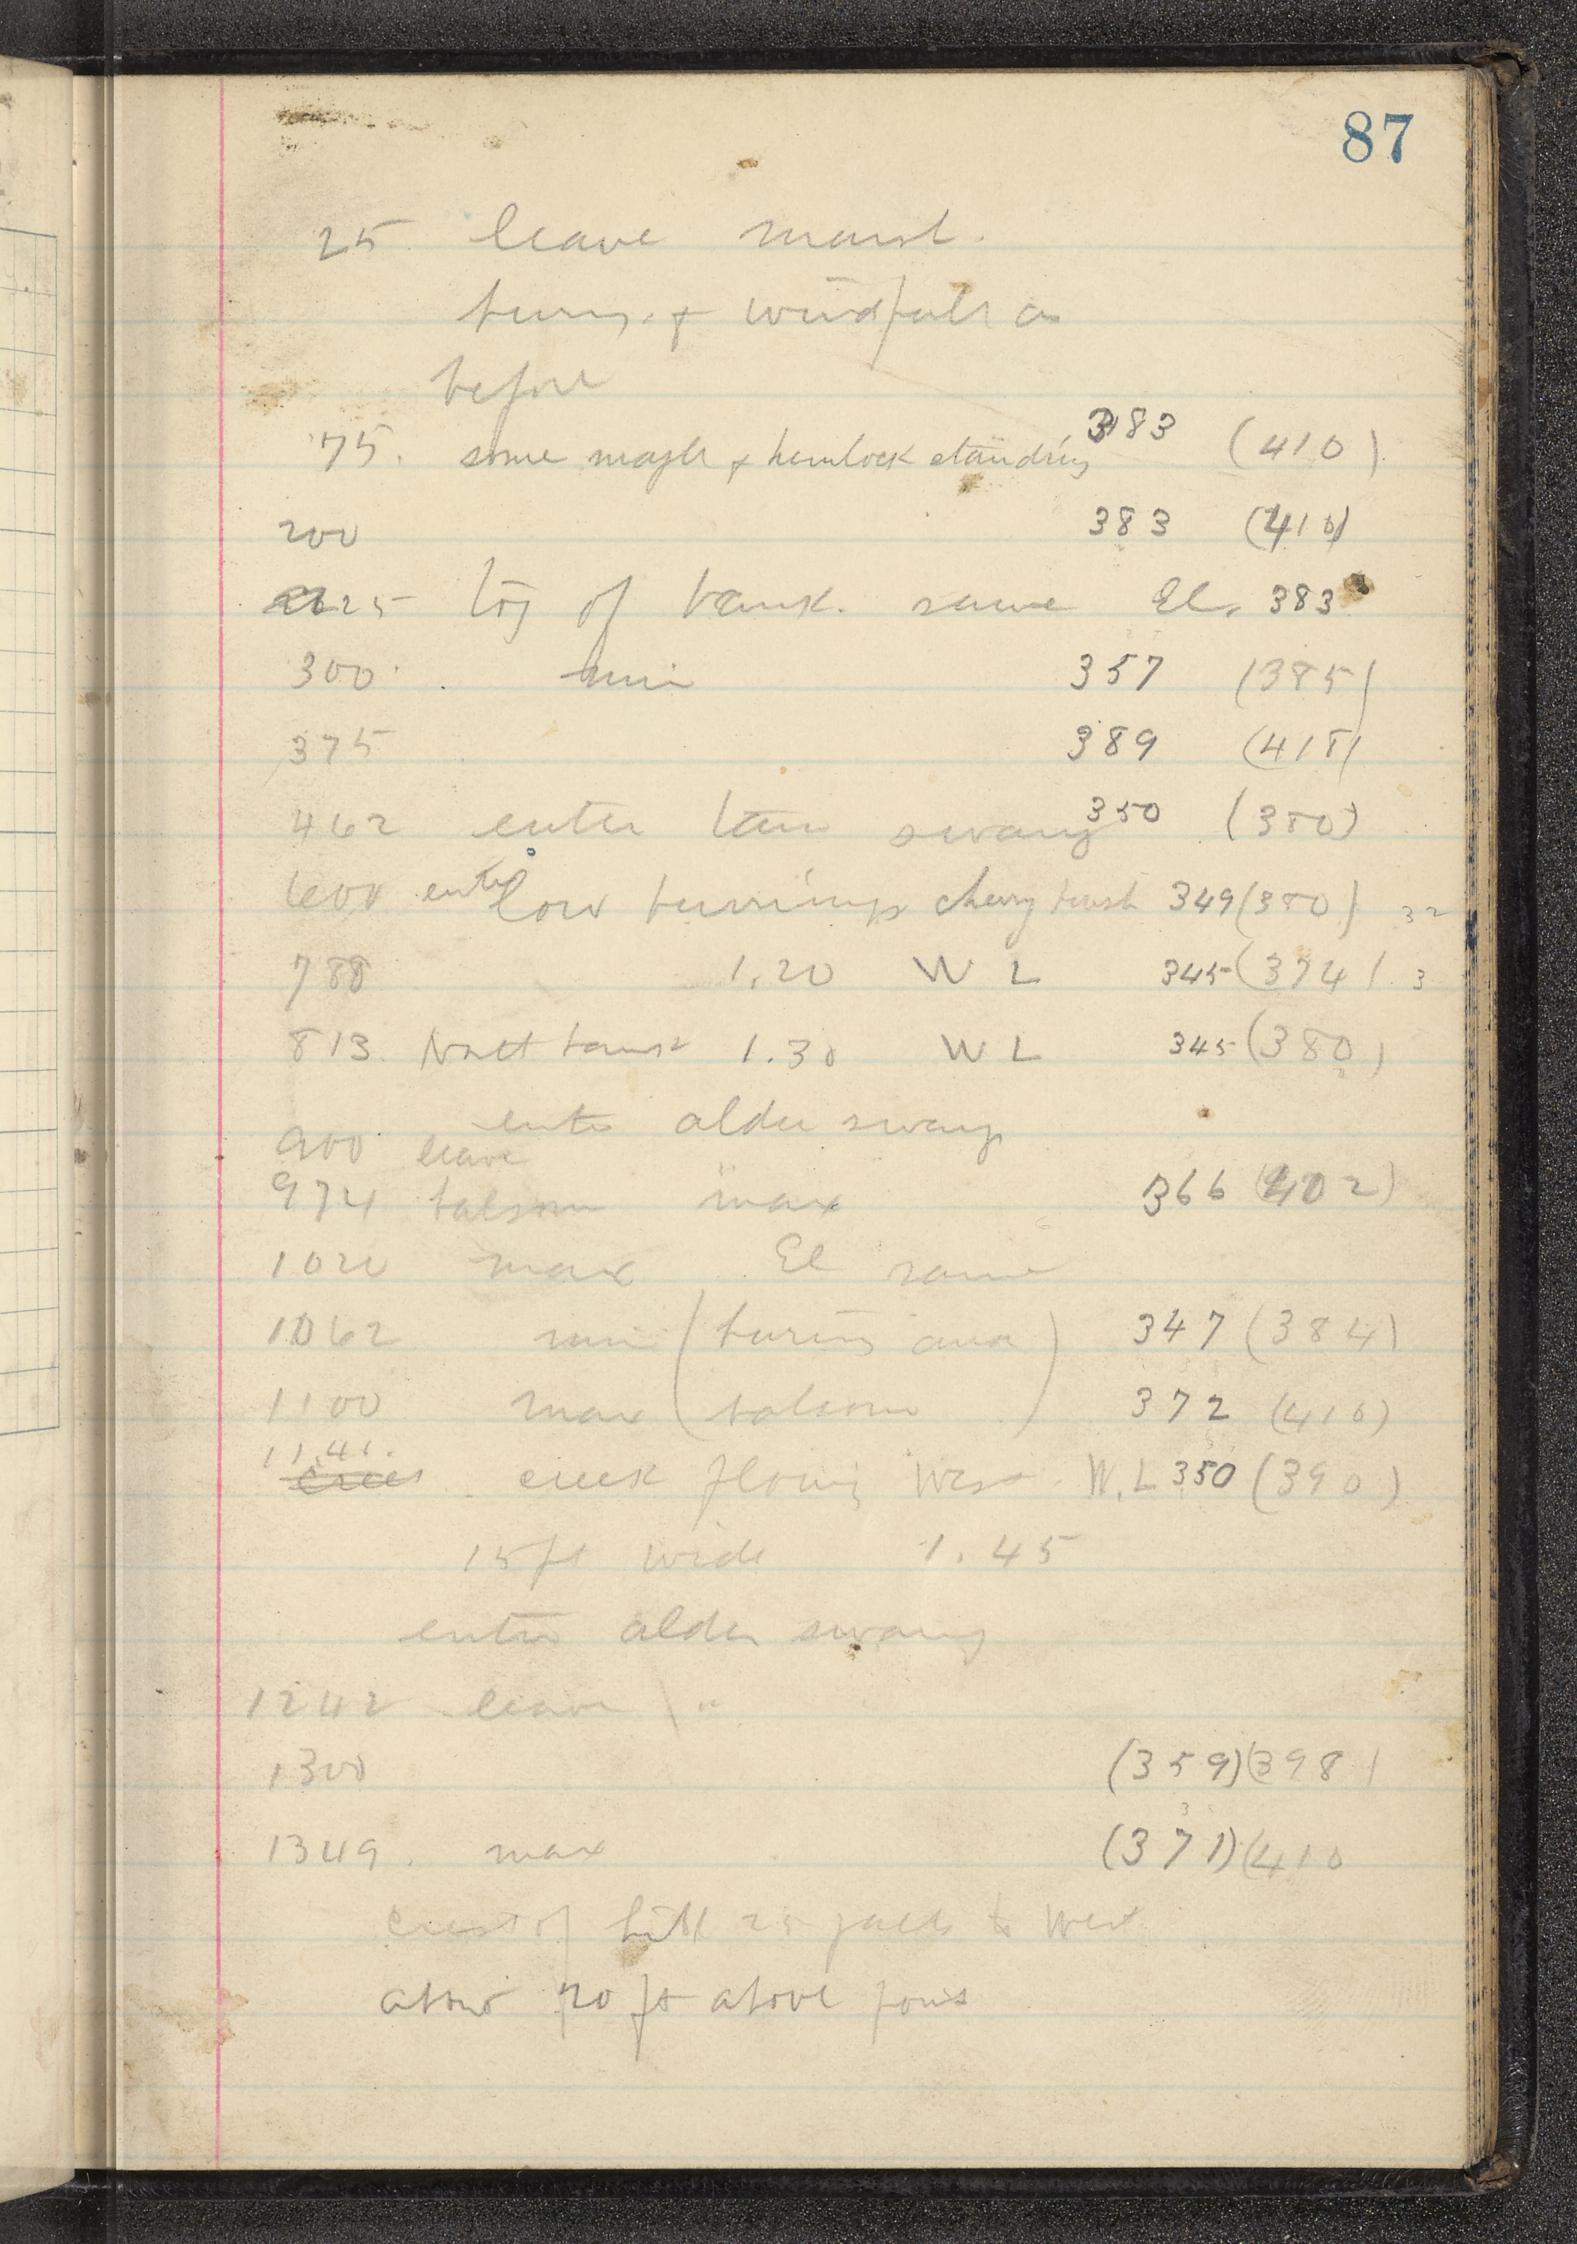 87
25 leave marsh.
burnings & windfalls as
before
75. some maple & hemlock standing 383 (410)
200 383 (410)
225 top of bank. same El. 383
300 min 357 (385)
375 389 (418)
462 enter tam swamp 350 (380)
600 enter low burnings cherry brush 349 (380) 32
788 1.20 W L 345 (374) 3
813 North bank 1.30 W L 345 (380)
enter alder swamp
900 leave
974 balsam max 366 (402)
1020 max El same
1062 min (burning area) 347 (384)
1100 max (balsam) 372 (410)
1141. creek flowing West. W.L 350 (390)
15 ft wide 1.45
enter alder swamp
1242 leave "
1300 (359) (398)
1349. max (371) (410
crest of hill 25 paces to West
about 20 ft above